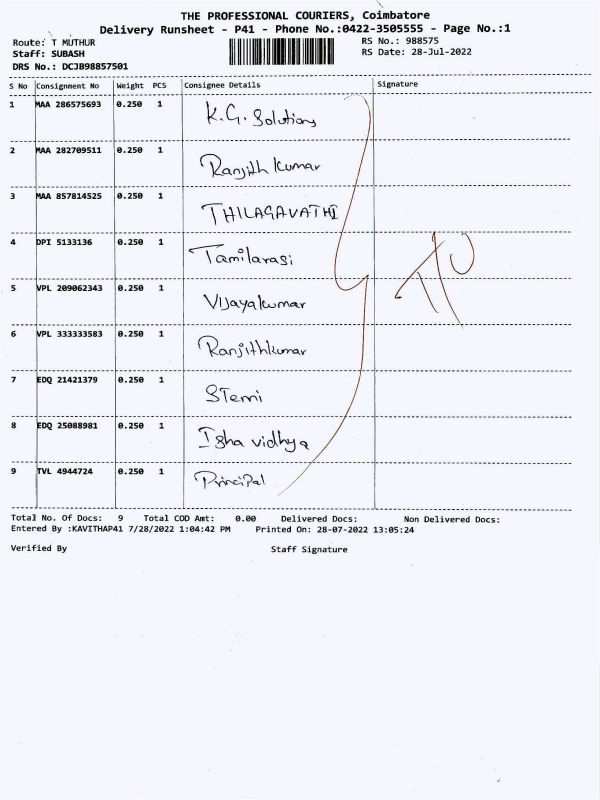 THE PROFESSIONAL COURIERS, Coimbatore
Delivery Runsheet - P41 - Phone No.:0422-3505555 - Page No.:1
Route: T MUTHUR
RS No.: 988575
Staff: SUBASH
RS Date: 28-Jul-2022
DRS No.: DCJ898857501
S No Consignment No Weight PCS Consignee Details Signature
1 MAA 286575693 0.250 1 K.G. Solutions
2 MAA 282709511 0.250 1 Ranjith Kumar
3 MAA 857814525 0.250 1 THILAGAVATHI
4 DPI 5133136 0.250 1 Tamilarasi
5 VPL 209062343 0.250 1 Vijayakumar
6 VPL 333333583 0.250 1 Ranjithkumar
7 EDQ 21421379 0.250 1 STemi
8 EDQ 25088981 0.250 1 Isha vidhya
9 TVL 4944724 0.250 1 Principal
T/O
Total No. Of Docs: 9 Total COD Amt: 0.00 Delivered Docs: Non Delivered Docs:
Entered By :KAVITHAP41 7/28/2022 1:04:42 PM Printed On: 28-07-2022 13:05:24
Verified By Staff Signature